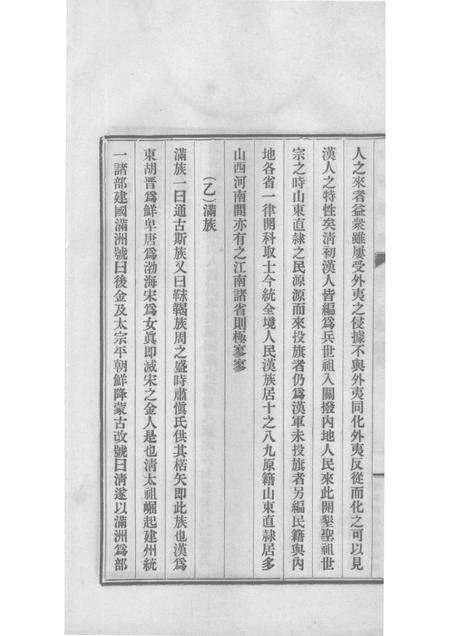 人之來者益衆雖屢受外夷之侵據不與外夷同化外夷反從而化之可以見
漢人之特性矣清初漢人皆編爲兵世祖入關撥內地人民來此開墾聖祖世
宗之時山東直隸之民源源而來投旗者仍爲漢軍未投旗者另編民籍與內
地各省一律開科取士今統全境人民漢族居十之八九原籍山東直隸居多
山西河南間亦有之江南諸省則極寥寥
(乙)滿族
滿族一曰通古斯族又曰靺鞨族周之盛時肅愼氏供其楛矢即此族也漢爲
東胡晉爲鮮卑唐爲渤海宋爲女眞即滅宋之金人是也淸太祖崛起建州統
一諸部建國滿洲號曰後金及太宗平朝鮮降蒙古改號曰淸遂以滿洲爲部